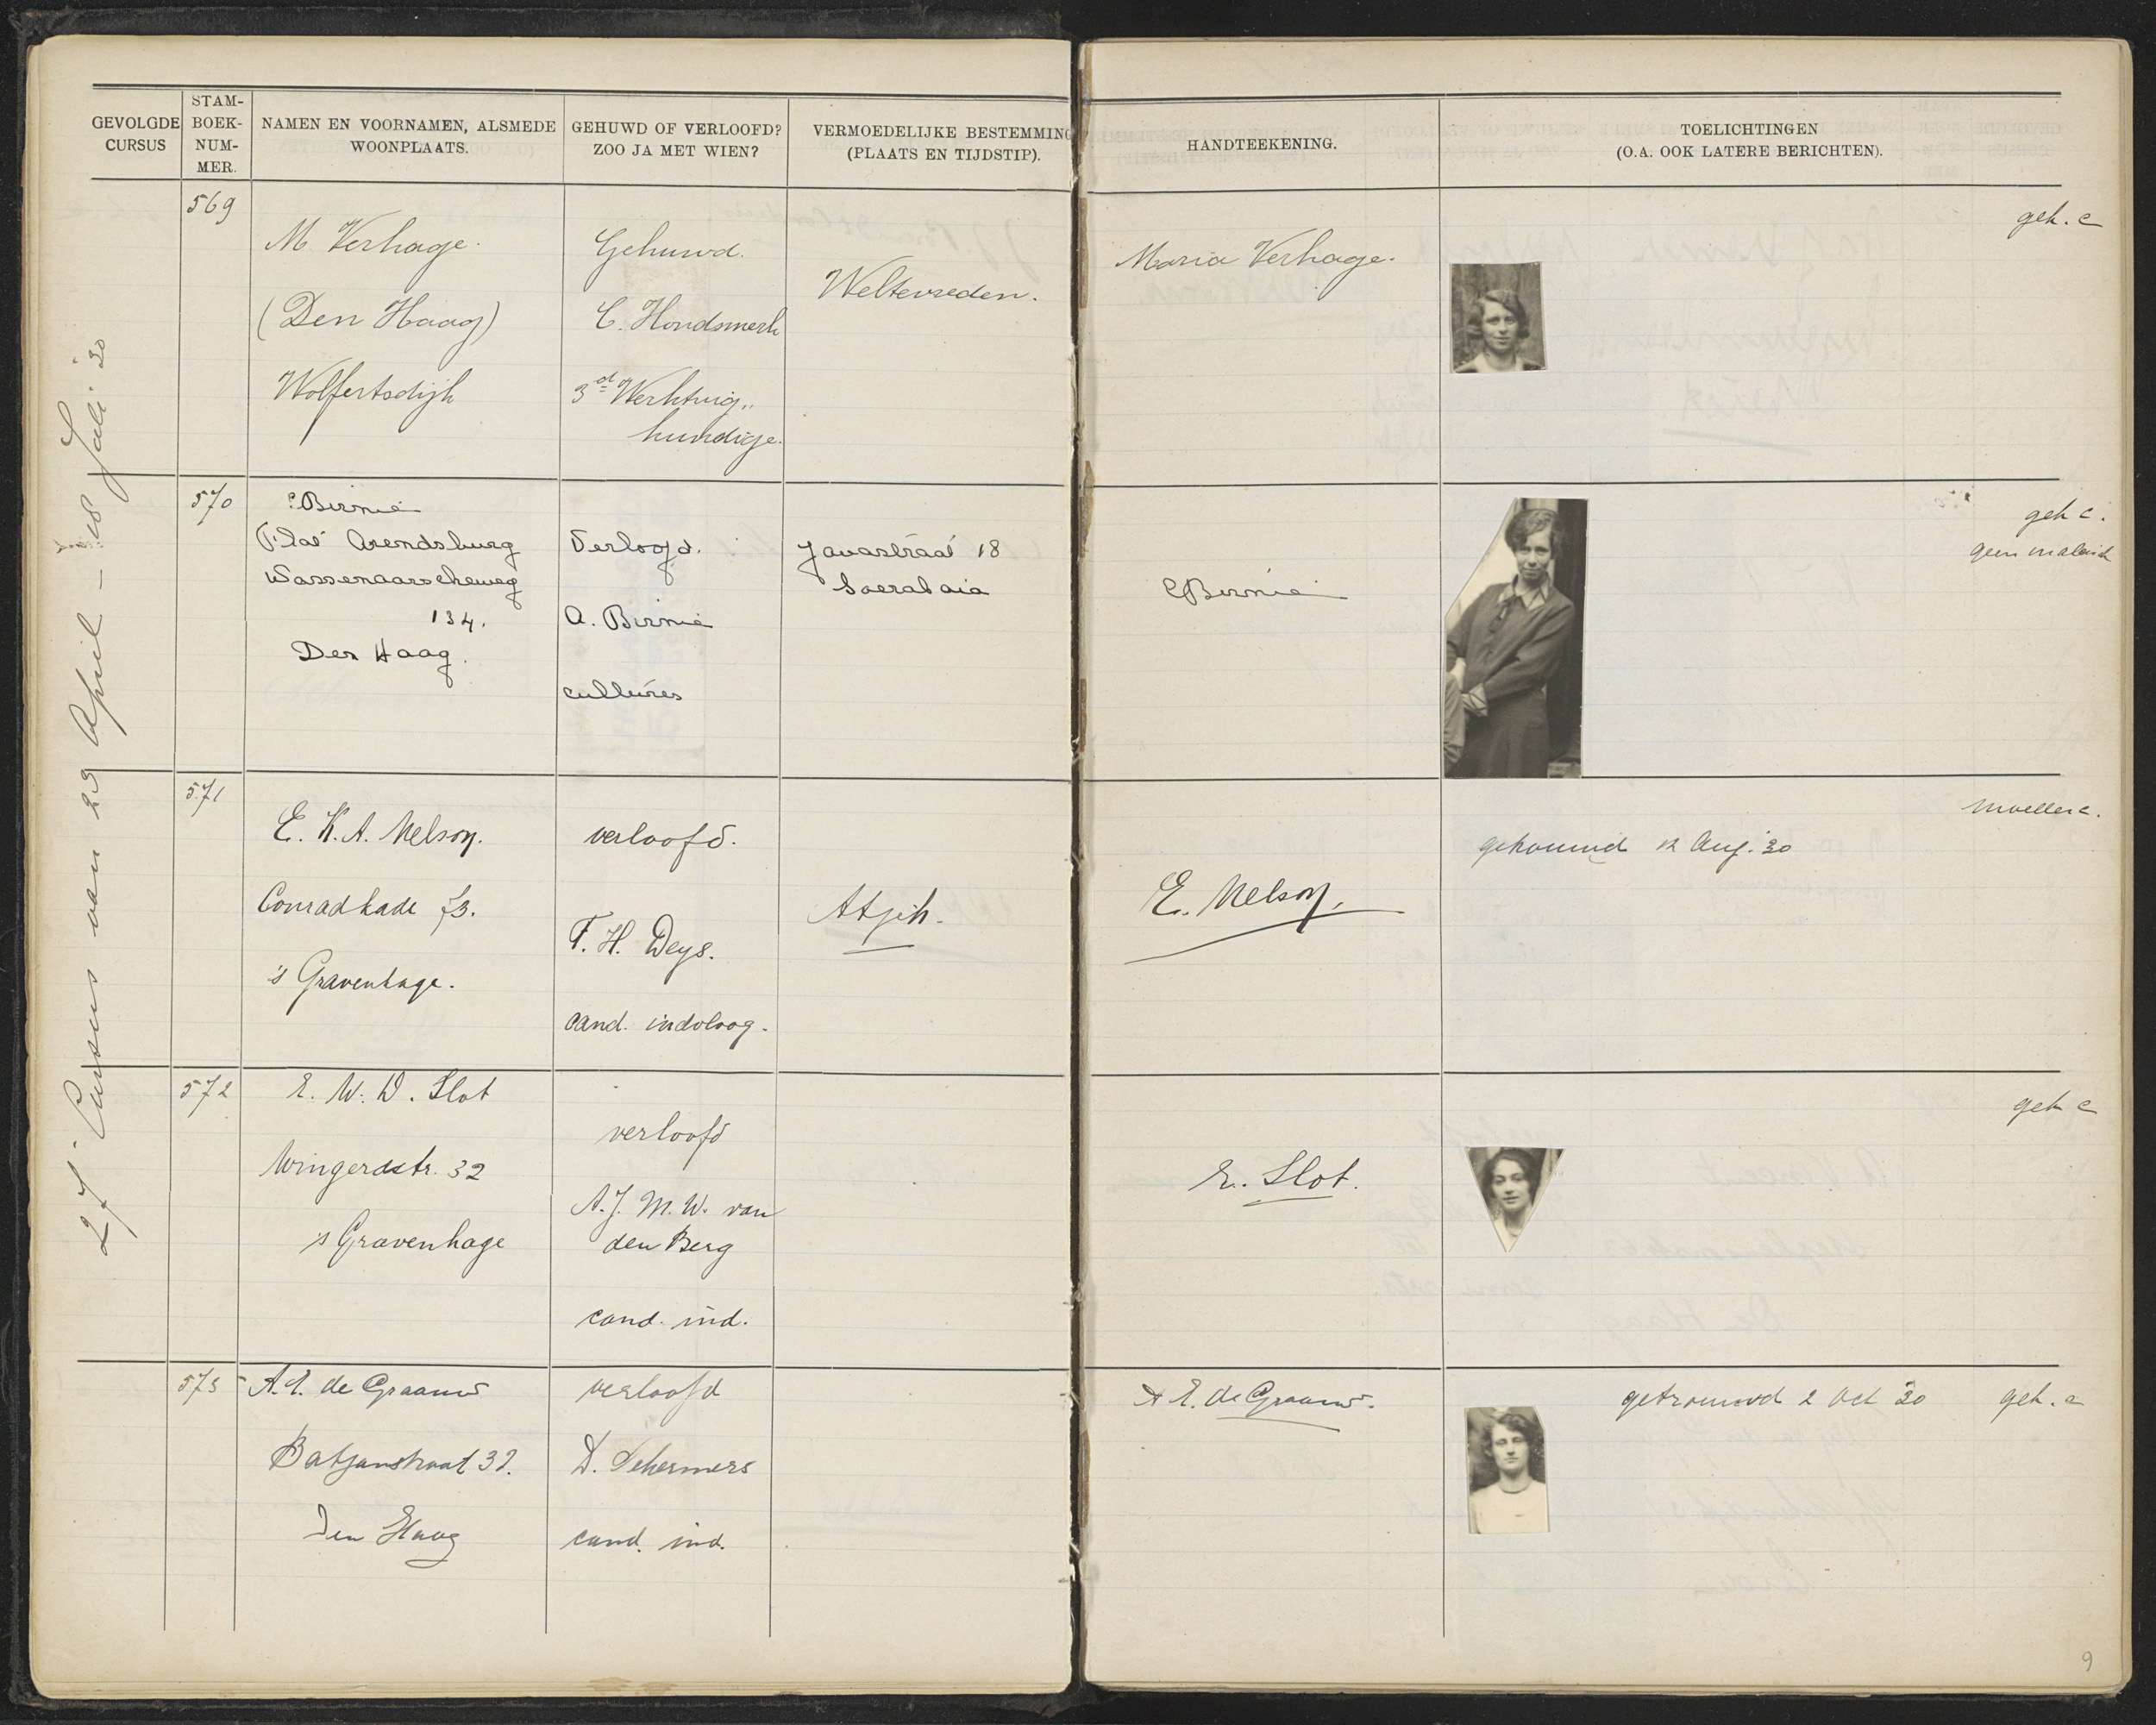 GEVOLGDE CURSUS
STAM-BOEK-NUM-MER.
NAMEN EN VOORNAMEN, ALSMEDE WOONPLAATS.
GEHUWD OF VERLOOFD? ZOO JA MET WIEN?
VERMOEDELIJKE BESTEMMING (PLAATS EN TIJDSTIP).
HANDTEEKENING.
TOELICHTINGEN (O.A. OOK LATERE BERICHTEN).
27e Cursus van 29 April – 18 Juli '30
569
M. Verhage.
(Den Haag)
Wolfertsdijk
Gehuwd.
C. Hondsmerk
3de Werktuig„
kundige.
Weltevreden.
Maria Verhage.
geh. c
570
C Birnie
Flat Arendsburg
Wassenaarscheweg
134.
Den Haag.
Verloofd.
A. Birnie
cultures
Javastraat 18
Soerabaia
C Birnie
geh c.
geen maleisch
571
E. K. A. Nelson.
Conradkade 73.
's Gravenhage.
verloofd.
F. H. Deys.
cand. indoloog.
Atjeh.
E. Nelson.
getrouwd 12 Aug. '30
572
E. W. D. Slot
Wingerdstr. 32
's Gravenhage
verloofd
A. J. M. W. van
den Berg
cand. ind.
E. Slot.
geh c
573
A. E. de Graauw
Batjanstraat 32.
Den Haag
verloofd
D. Schermers
cand. ind.
A E. de Graauw.
getrouwd 2 Oct '30
geh. c
9